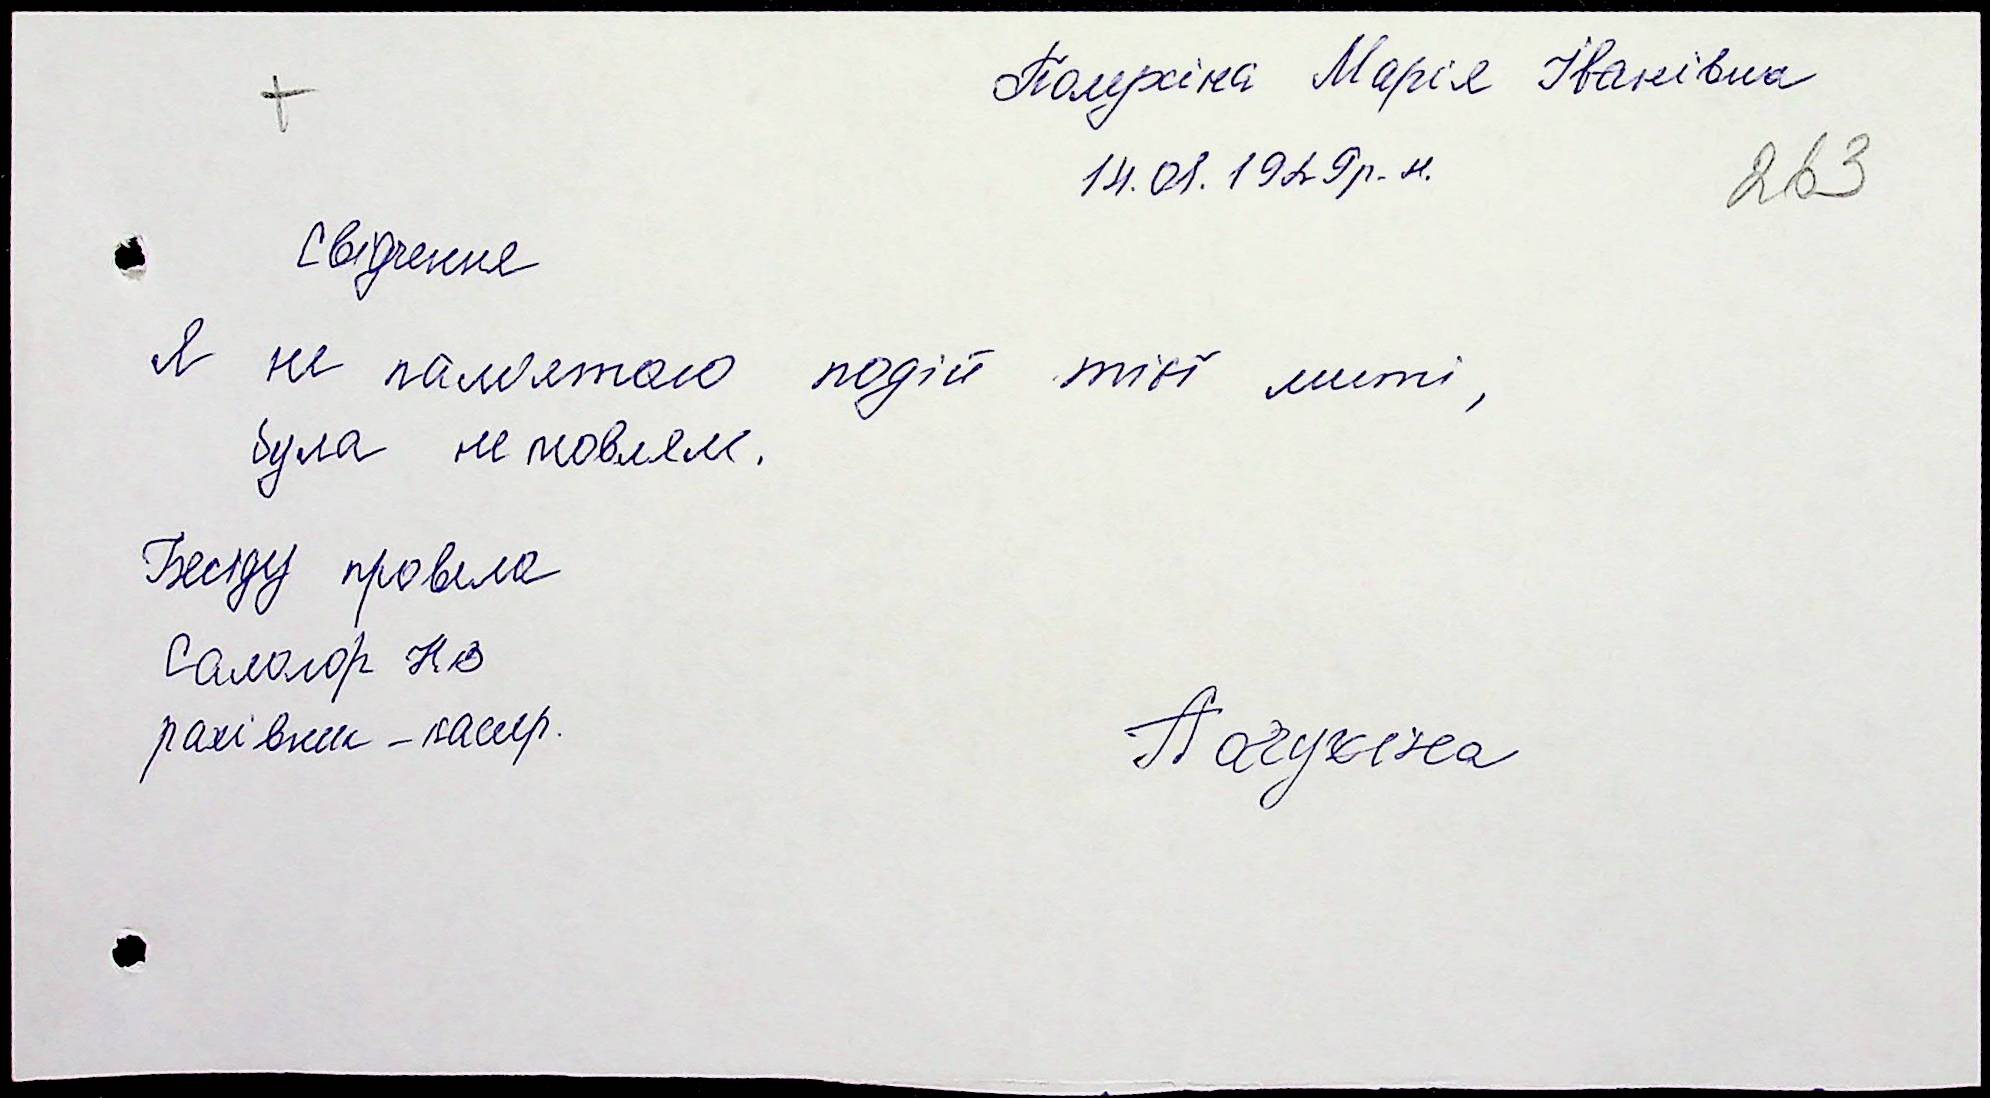 Марія Іванівна
14.01.1929 р. н.
263
Свідчення
Я не пам'ятаю подій тієї миті,
була немовлям.
Бесіду провела
Саломор Н В
рахівник - касир.